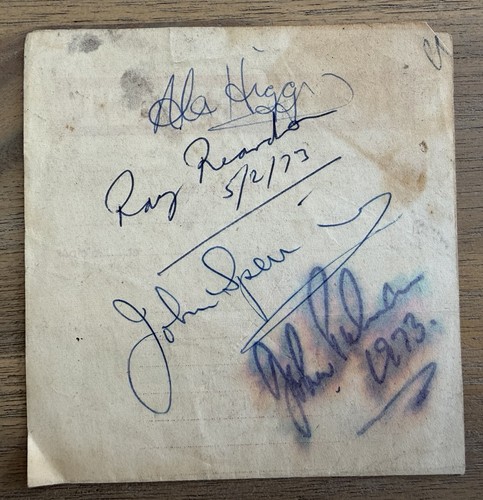 Alex Higgins
Ray Reardon
5/2/73
John Spencer
John Pulman
1973.